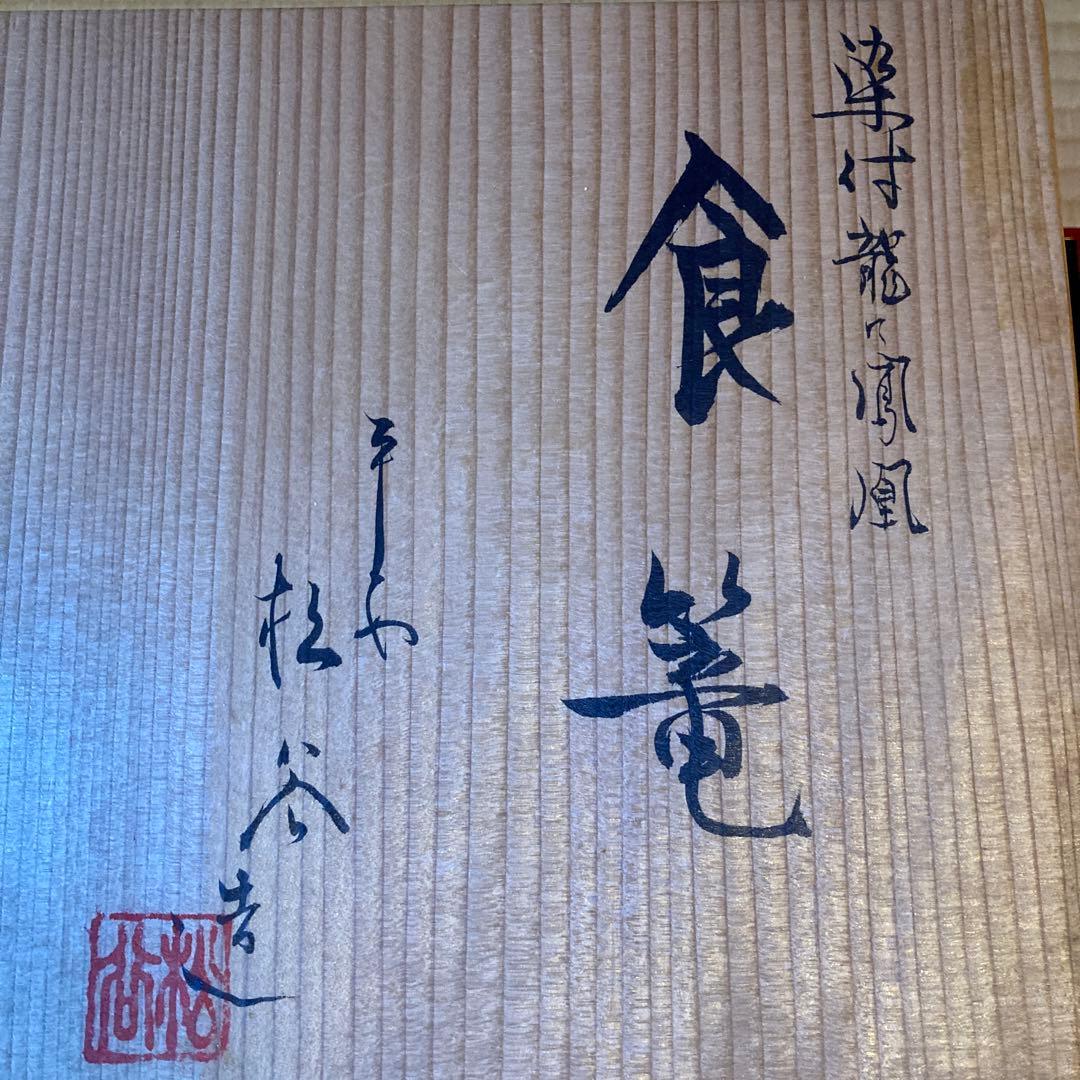 染付龍ニ鳳凰
食篭
平安
松谷造
松谷